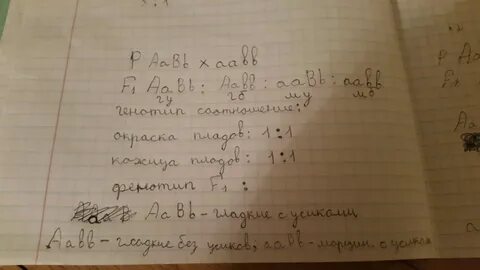 P AaBb x aabb
F1 AaBb : Aabb : aaBb : aabb
гу гб му мб
генотип соотношение:
окраска плодов: 1:1
кожица плодов: 1:1
фенотип F1 :
AaBb - гладкие с усиками
Aabb - гладкие без усиков, aaBb - морщин. с усикам